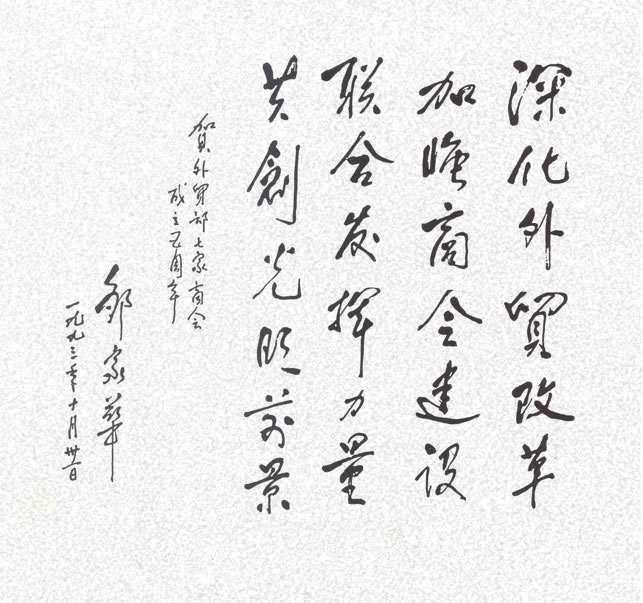 深化外贸改革
加强商会建设
联合发挥力量
共创光明前景
贺外贸部七家商会
成立五周年
邹家华
一九九三年十月卅日